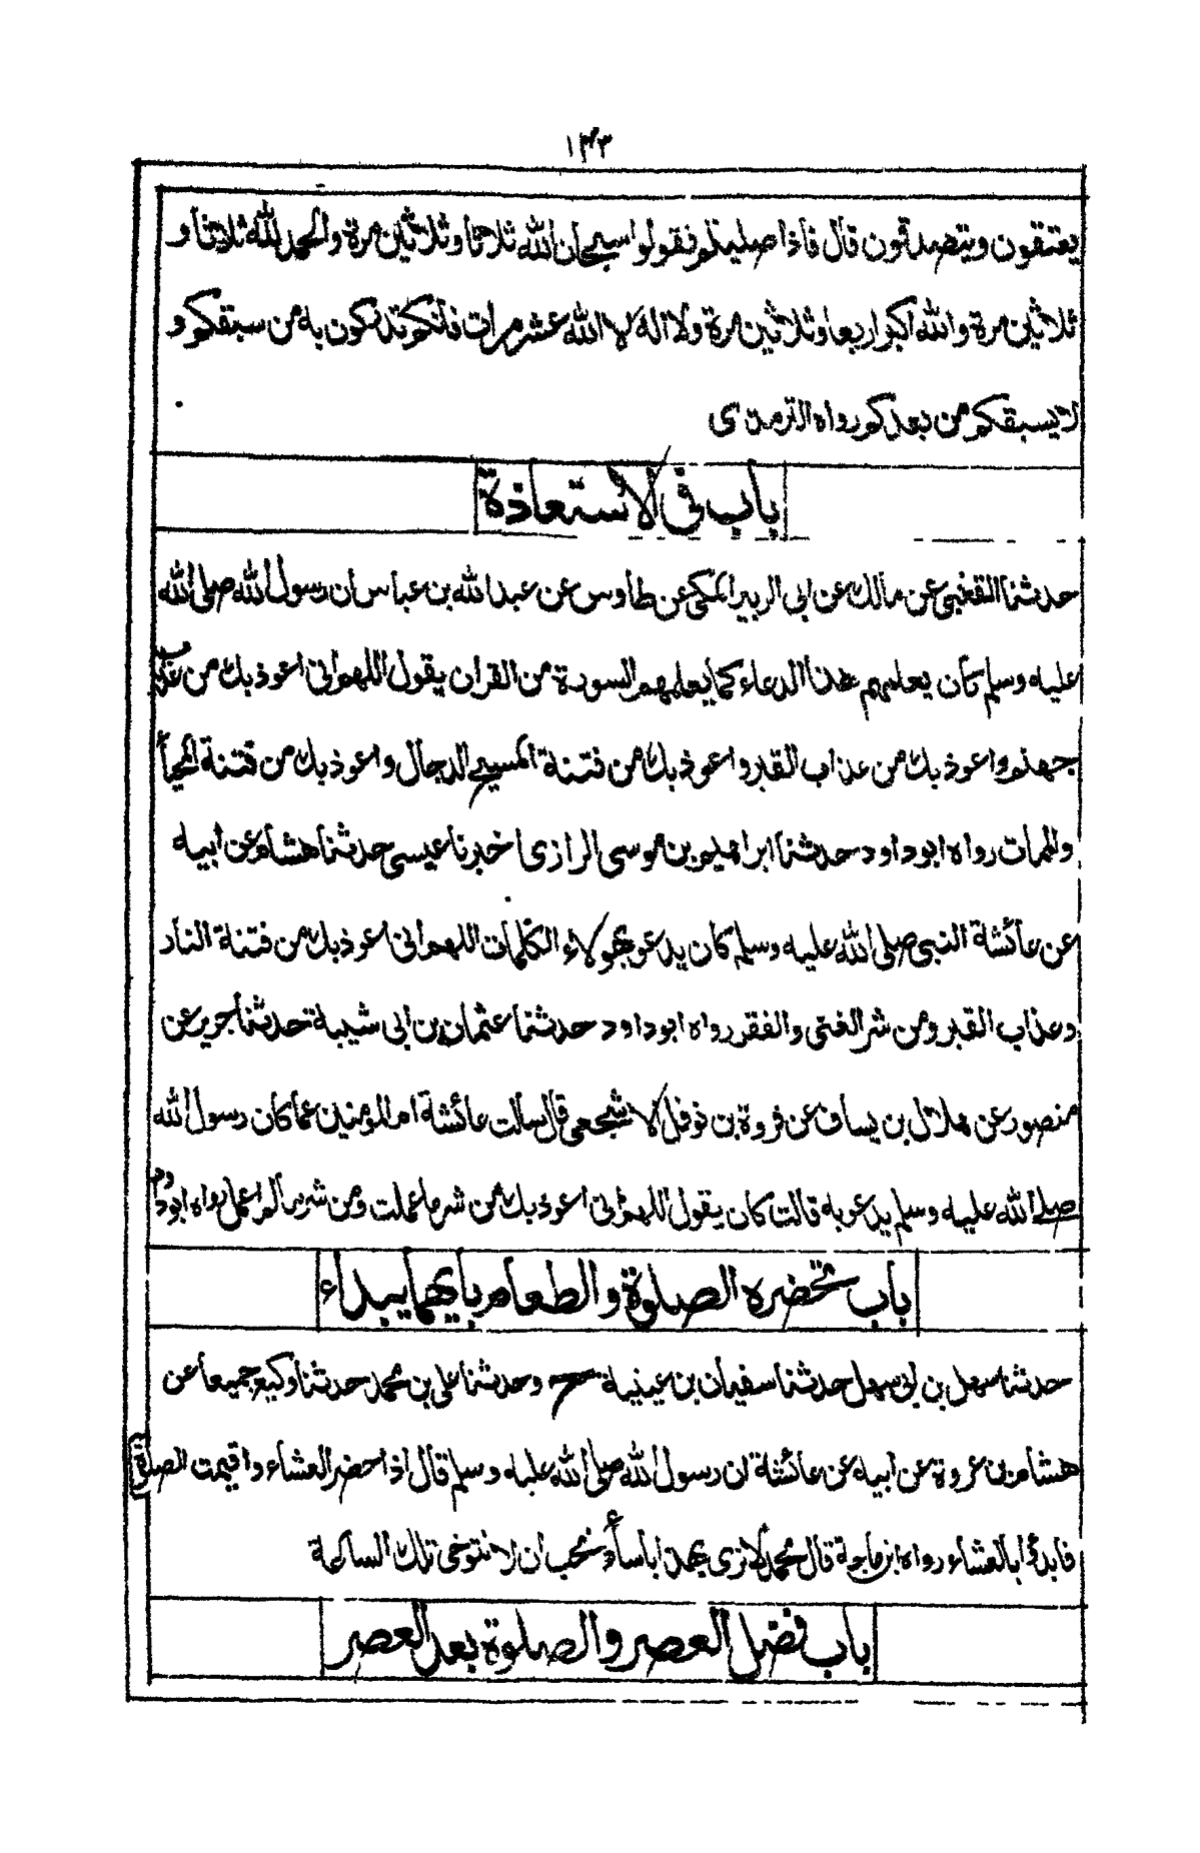 ١٤٣
يعتقون ويتصدقون قال فاذا صليتم فقولوا سبحان الله ثلاثا وثلاثين مرة والحمد لله ثلاثا و
ثلاثين مرة والله اكبر اربعا وثلاثين مرة ولا اله الا الله عشر مرات فانكم تدركون به من سبقكم و
لا يسبقكم من بعدكم رواه الترمذي
باب في الاستعاذة
حدثنا القعنبي عن مالك عن ابي الزبير المكي عن طاوس عن عبد الله بن عباس ان رسول الله صلى الله
عليه وسلم كان يعلمهم هذا الدعاء كما يعلمهم السورة من القران يقول اللهم اني اعوذ بك من عذاب
جهنم واعوذ بك من عذاب القبر واعوذ بك من فتنة المسيح الدجال واعوذ بك من فتنة المحيا
والممات رواه ابوداود حدثنا ابراهيم بن موسى الرازى اخبرنا عيسى حدثنا هشام عن ابيه
عن عائشة النبي صلى الله عليه وسلم كان يدعو بهولاء الكلمات اللهم اني اعوذ بك من فتنة النار
وعذاب القبر ومن شر الغنى والفقر رواه ابوداود حدثنا عثمان بن ابي شيبة حدثنا جرير عن
منصور عن هلال بن يساف عن فروة بن نوفل الاشجعي قال سالت عائشة ام المومنين عما كان رسول الله
صلى الله عليه وسلم يدعو به قالت كان يقول اللهم اني اعوذ بك من شر ما عملت ومن شر ما لم اعمل رواه ابوداود
باب تحضره الصلوة والطعام بايهما يبداء
حدثنا سهل بن ابي سهل حدثنا سفيان بن عيينة ح وحدثنا علي بن محمد حدثنا وكيع جميعا عن
هشام بن عروة عن ابيه عن عائشة ان رسول الله صلى الله عليه وسلم قال اذا حضر العشاء واقيمت الصلوة
فابدؤا بالعشاء رواه ابن ماجة قال محمد لا نرى بهذا باسا ونحب ان لا نتوخى تلك الساعة
باب فضل العصر والصلوة بعد العصر